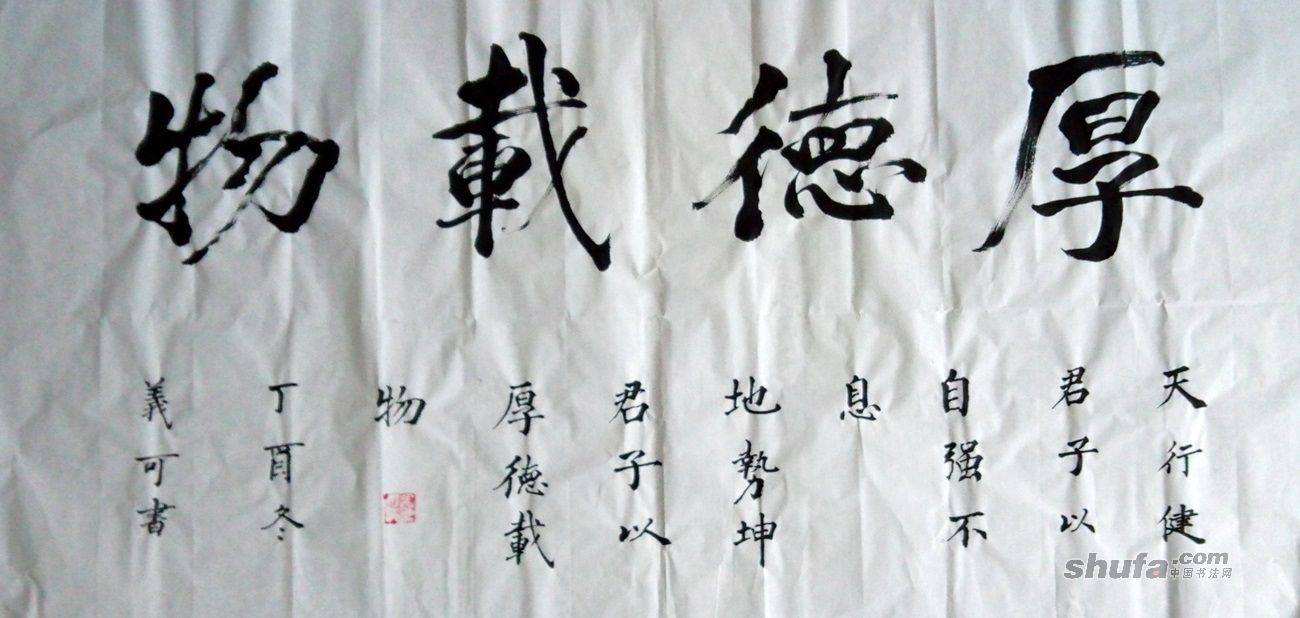 厚德載物
天行健
君子以
自强不
息
地勢坤
君子以
厚德載
物
丁酉冬
義可書
shufa.com
中国书法网